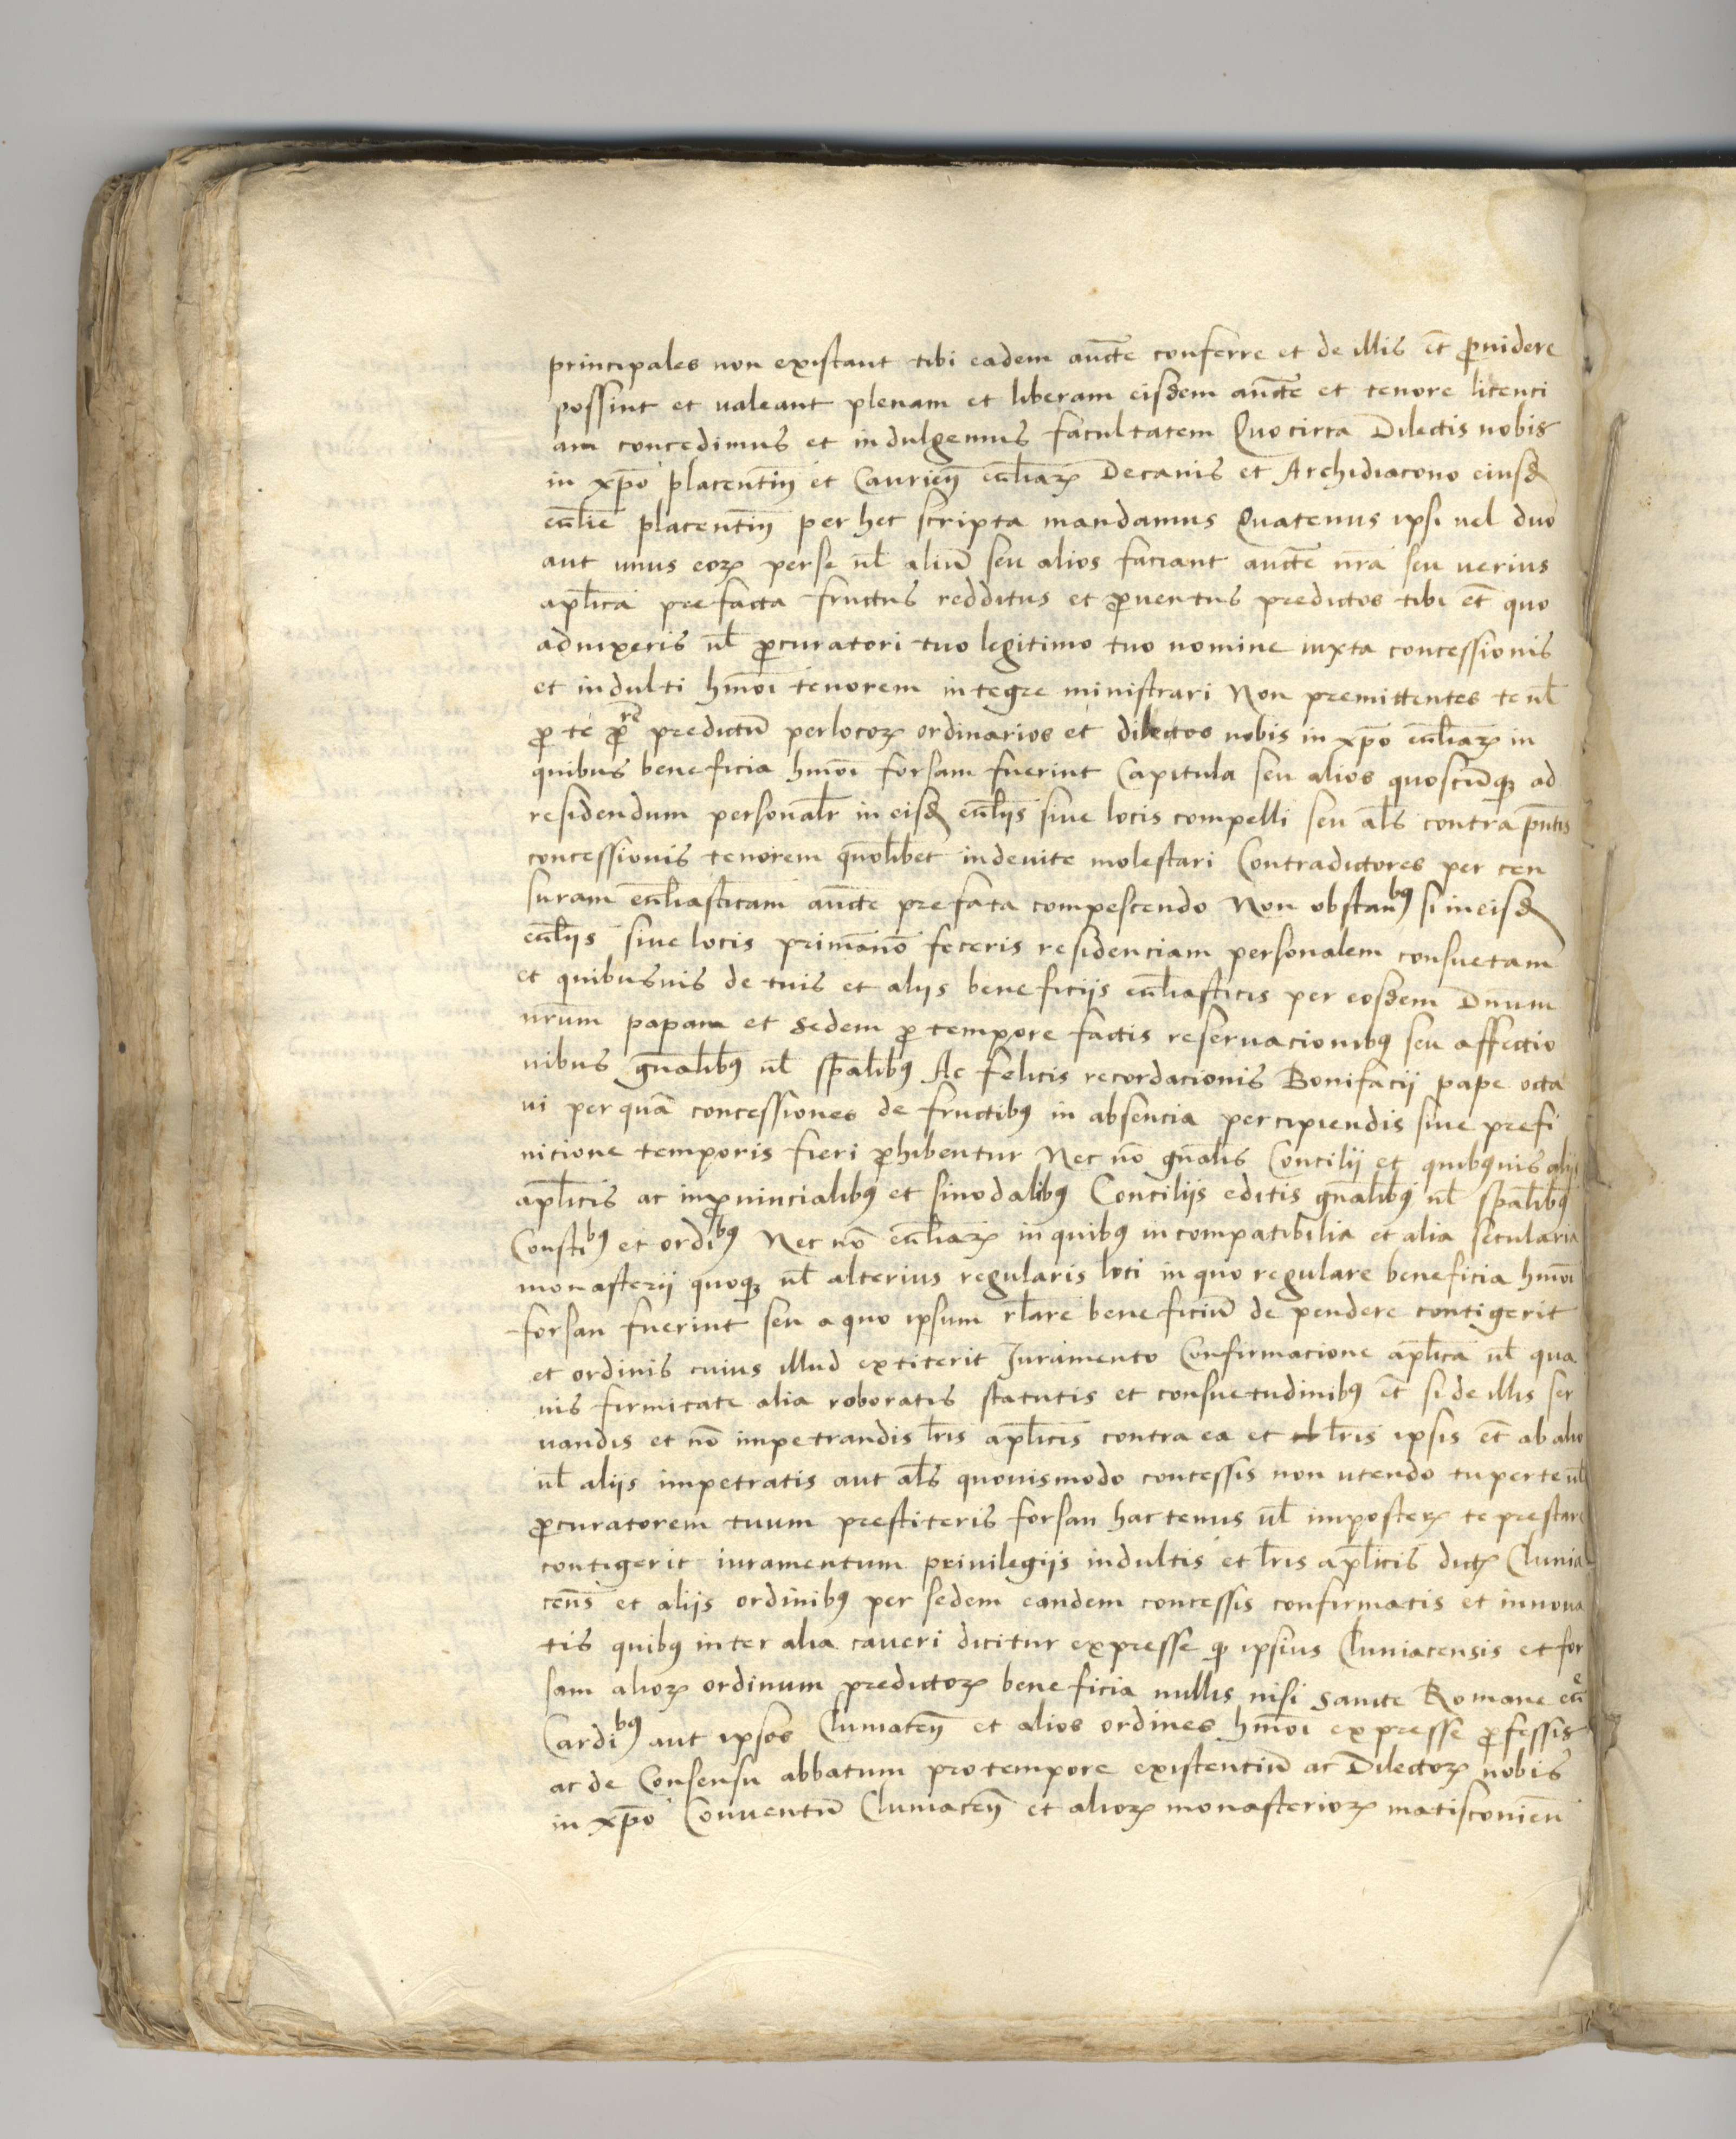 principales non existant tibi eadem aucte͞ conferre et de illis et͞ ꝓuidere
possint et ualeant plenam et liberam eisdem aucte͞ et tenore licenti
am concedimus et indulgemus facultatem Quocirca Dilectis nobis
in xp͞o placentin͞ et Caurien͞ eccl͞iaꝝ Decanis et Archidiacono eiusd͞
eccl͞ie placentin͞ per hec scripta mandamus Quatenus ipsi uel duo
aut unus eoꝝ per se ul͞ aliu͞ seu alios faciant aucte͞ nr͞a seu uerius
apl͞ica prefacta fructus redditus et ꝓuentus predictos tibi et͞ quo
aduixeris ul͞ ꝓcuratori tuo legitimo tuo nomine iuxta concessionis
et indulti hmo͞i tenorem integre ministrari Non premittentes te ul͞
ꝓ te ꝓre͞ predictu͞ per locoꝝ ordinarios et dilectos nobis in xp͞o eccl͞iaꝝ in
quibus beneficia hmo͞i forsam fuerint Capitula seu alios quoscu͞qꝫ ad
residendum personalr͞ in eisd͞ eccl͞iis siue locis compelli seu al͞s contra pn͞tis
concessionis tenorem quo͞libet indeuite molestari Contradictores per cen
suram eccl͞iasticam aucte͞ prefata compescendo Non obstanbꝰ si in eisd͞
eccl͞iis siue locis prima͞ no͞ feceris residenciam personalem consuetam
et quibusuis de tuis et aliis beneficiis eccl͞iasticis per eosdem Dn͞um
nr͞um papam et sedem ꝓ tempore factis reseruacionibꝰ seu affectio
nibus gn͞alibꝰ ul͞ sp͞alibꝰ Ac felicis recordacionis Bonifacii pape octa
ui per qua͞ concessiones de fructibꝰ in absencia percipiendis siue prefi
nicione temporis fieri ꝓhibentur Nec no͞ gn͞alis Concilii et quibꝰuis aliis
apl͞icis ac in ꝓuincialibꝰ et sinodalibꝰ Conciliis editis gn͞alibꝰ ul͞ sp͞alibꝰ
Constibꝰ et ordibꝰ Nec no͞ eccl͞iaꝝ in quibꝰ incompatibilia et alia secularia
monasterii quoqꝫ ul͞ alterius regularis loci in quo regulare beneficia hmo͞i
forsan fuerint seu a quo ipsum rl͞are beneficiu͞ de pendere contigerit
et ordinis cuius illud extiterit Juramento Confirmacione apl͞ica ul͞ qua
uis firmitate alia roboratis statutis et consuetudinibꝰ et͞ si de illis ser
uandis et no͞ impetrandis lr͞is apl͞icis contra ea et lr͞is ipsis et͞ ab alio
ul͞ aliis impetratis aut al͞s quouismodo concessis non utendo tu per te ul͞
ꝓcuratorem tuum prestiteris forsan hactenus ul͞ imposteꝝ te prestare
contigerit iuramentum priuilegiis indultis et lr͞is apl͞icis dictꝝ Clunia
cen͞s et aliis ordinibꝰ per sedem eandem concessis confirmatis et innoua
tis quibꝰ inter alia caueri dicitur expresse qꝫ ipsius Cluniacensis et for
sam alioꝝ ordinum predictoꝝ beneficia nullis nisi sancte Romane ecc͞e
Cardibꝰ aut ipsos Cluniacen͞ et alios ordines hmo͞i expresse ꝓfessis
ac de Consensu abbatum pro tempore existentiu͞ ac Dilectoꝝ nobis
in xp͞o Conuentu͞ Cluniacen͞ et alioꝝ monasterioꝝ matisconien͞